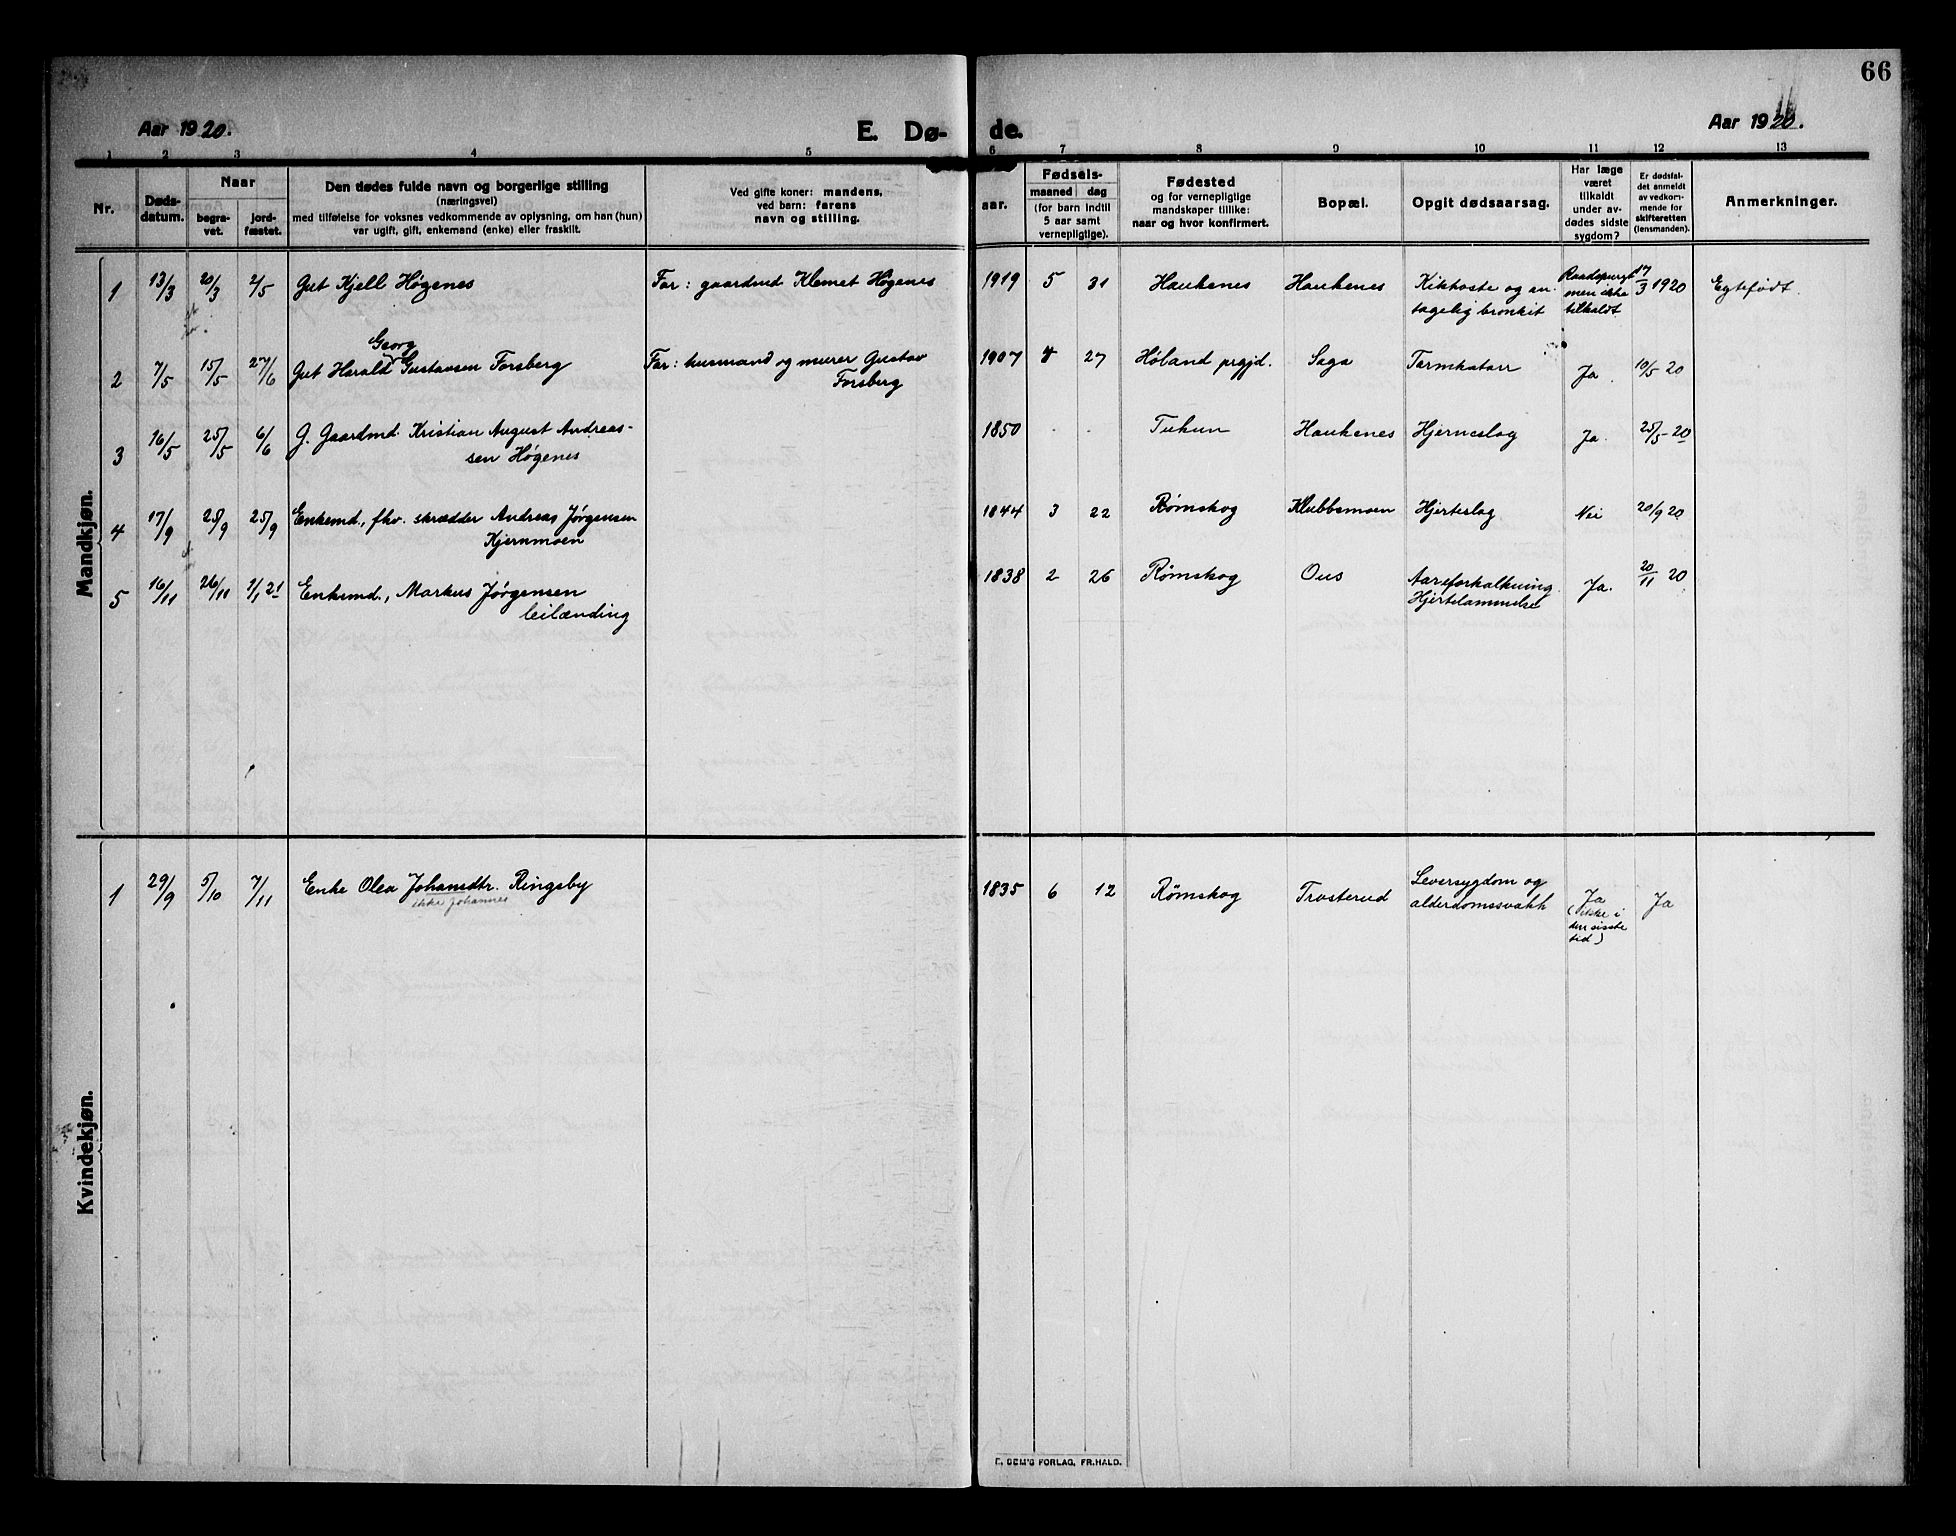 66
Aar 1920.
E. Dø-
de.
Aar 1920.
1 2 3 4 5 6 7 8 9 10 11 12 13
Nr.
Døds-
datum.
Naar
begra-
vet.
jord-
fæstet.
Den dødes fulde navn og borgerlige stilling
(næringsvei)
med tilføielse for voksnes vedkommende av oplysning, om han (hun)
var ugift, gift, enkemand (enke) eller fraskilt.
Ved gifte koner: mandens,
ved barn: farens
navn og stilling.
aar.
Fødsels-
maaned dag
(for barn indtil
5 aar samt
vernepligtige).
Fødested
og for vernepligtige
mandskaper tillike:
naar og hvor konfirmert.
Bopæl.
Opgit dødsaarsag.
Har læge
været
tilkaldt
under av-
dødes sidste
sygdom?
Er dødsfal-
det anmeldt
av vedkom-
mende for
skifteretten
(lensmanden).
Anmerkninger.
Mandkjøn.
1 13/3 20/3 2/5 Gut Kjell Høgenes Far: gaardmd Klemet Høgenes 1919 5 31 Haukenes Haukenes Kikhoste og an-
tagelig bronkit
Raadspurgt
men ikke
tilkaldt
17/3 1920 Egtefødt.
Georg
2 7/5 15/5 27/6 Gut Harald Gustavsen Forsberg Far: husmand og murer Gustav
Forsberg
1907 27 Høland prgjd. Saga Tarmkatarr Ja. 10/5 20
3 16/5 25/5 6/6 G. Gaardmd. Kristian August Andreas-
sen Høgenes
1850 - - Tukun Haukenes Hjerneslag Ja. 25/5-20
4 17/9 25/9 25/9 Enkemd., fhv. skrædder Andreas Jørgensen
Kjernmoen
1844 3 22 Rømskog Klubbemoen Hjerteslag Nei 20/9 20
5 16/11 26/11 1/1 21 Enkemd., Markus Jørgensen
leilænding
1838 2 26 Rømskog Ous Aareforkalkning.
Hjertelammelse
Ja. 20/11 20
Kvindekjøn.
1 29/9 5/10 7/11 Enke Olea Johansdtr. Ringsby
ikke Johannes
1835 6 12 Rømskog Trosterud Leversygdom og
alderdomssvakh
Ja
(ikke i
den sisste
tid)
Ja
E. SEM'S FORLAG, FR.HALD.